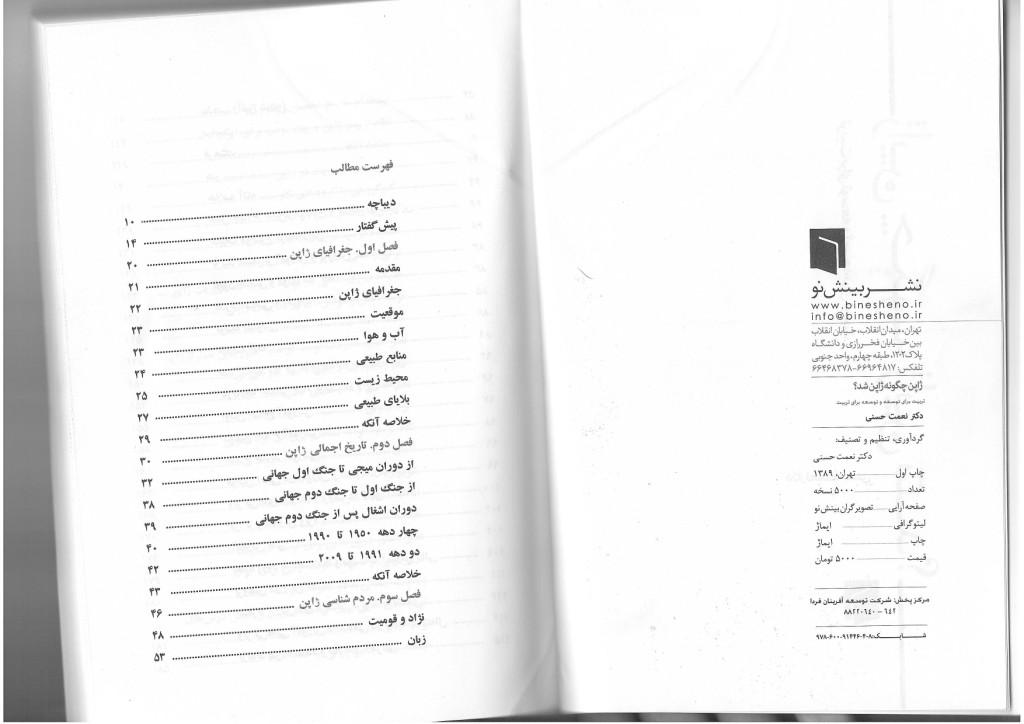 نشر بینش نو
www.binesheno.ir
info@binesheno.ir
تهران، میدان انقلاب، خیابان انقلاب
بین خیابان فخررازی و دانشگاه
پلاک ۱۲۰۲، طبقه چهارم، واحد جنوبی
تلفکس: ۶۶۹۶۴۸۱۷-۶۶۴۶۸۳۷۸
ژاپن چگونه ژاپن شد؟
تربیت برای توسعه و توسعه برای تربیت
دکتر نعمت حسنی
گردآوری، تنظیم و تصنیف:
دکتر نعمت حسنی
چاپ اول ........ تهران، ۱۳۸۹
تعداد ........ ۵۰۰۰ نسخه
صفحه آرایی ..... تصویرگران بینش نو
لیتوگرافی ........ ایماژ
چاپ ........ ایماژ
قیمت ........ ۵۰۰۰ تومان
مرکز پخش: شرکت توسعه آفرینان فردا
۸۸۲۲۰۶۴۰ – ۶۴۲
شابک: ۸-۴-۹۱۴۴۶-۶۰۰-۹۷۸
فهرست مطالب
دیباچه ........ ۱۰
پیش گفتار ........ ۱۴
فصل اول. جغرافیای ژاپن ........ ۲۰
مقدمه ........ ۲۱
جغرافیای ژاپن ........ ۲۲
موقعیت ........ ۲۳
آب و هوا ........ ۲۳
منابع طبیعی ........ ۲۴
محیط زیست ........ ۲۵
بلایای طبیعی ........ ۲۷
خلاصه آنکه ........ ۲۹
فصل دوم. تاریخ اجمالی ژاپن ........ ۳۰
از دوران میجی تا جنگ اول جهانی ........ ۳۲
از جنگ اول تا جنگ دوم جهانی ........ ۳۸
دوران اشغال پس از جنگ دوم جهانی ........ ۳۹
چهار دهه ۱۹۵۰ تا ۱۹۹۰ ........ ۴۰
دو دهه ۱۹۹۱ تا ۲۰۰۹ ........ ۴۲
خلاصه آنکه ........ ۴۳
فصل سوم. مردم شناسی ژاپن ........ ۴۶
نژاد و قومیت ........ ۴۸
زبان ........ ۵۳